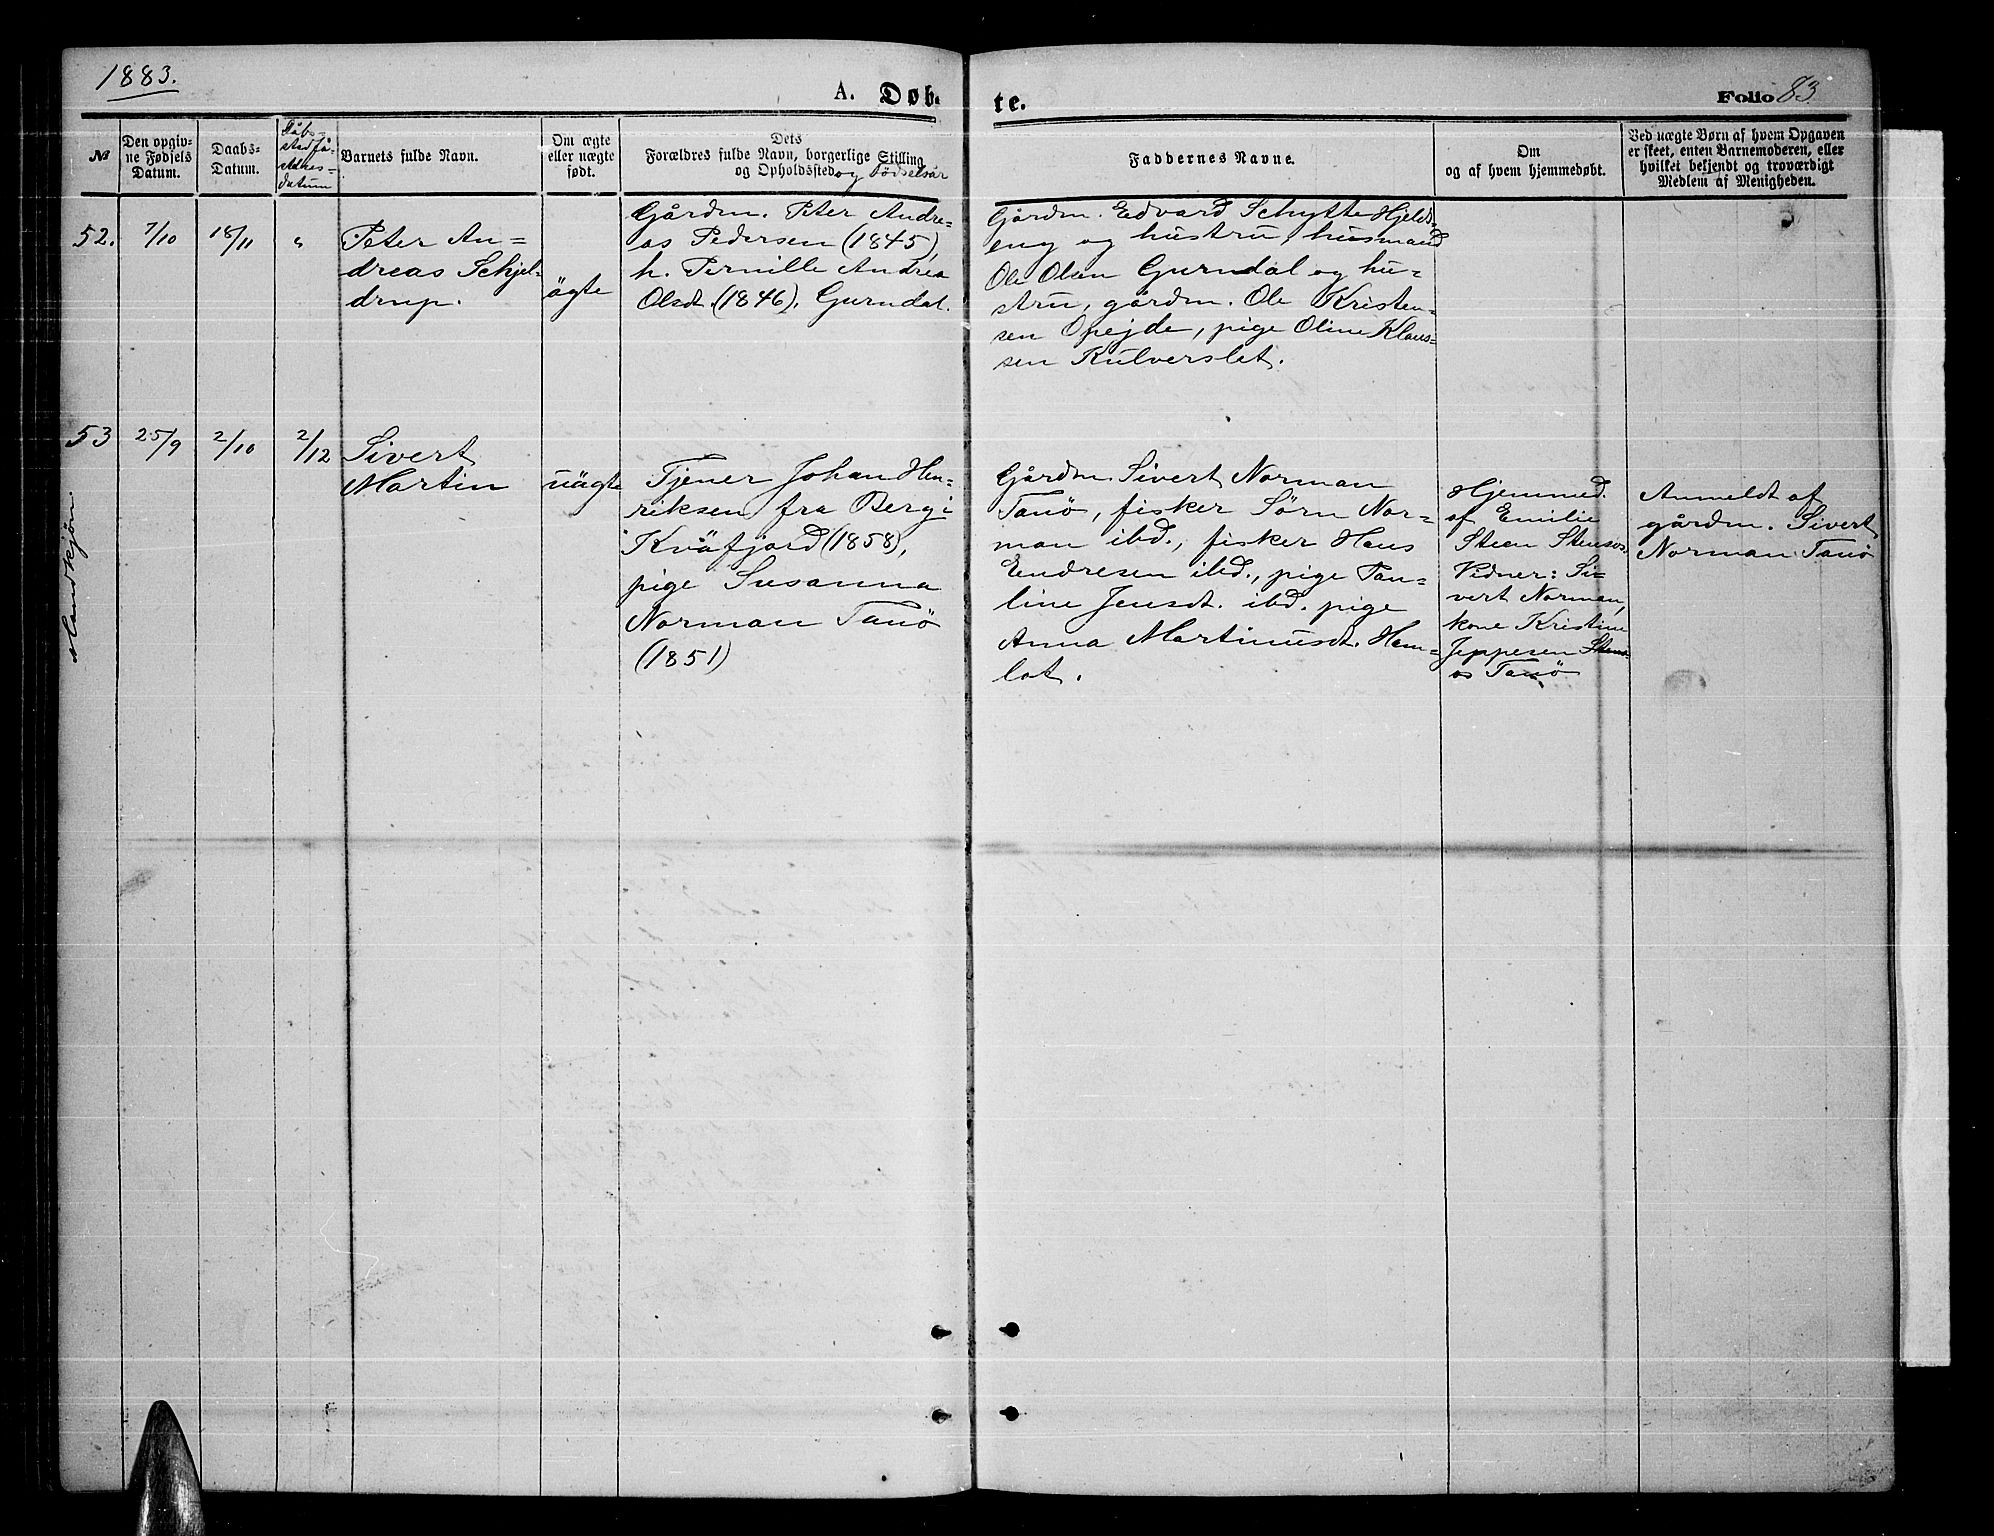 1883.
A. Døb-
te.
Folio 83
№
Den opgiv-
ne Fødsels
Datum.
Daabs-
Datum.
Dåbs-
stadfæ-
stelses-
datum
Barnets fulde Navn.
Om ægte
eller uægte
født.
Dets
Forældres fulde Navn, borgerlige Stilling
og Opholdssted og Födselsår
Faddernes Navne.
Om
og af hvem hjemmedøbt.
Ved uægte Børn af hvem Opgaven
er skeet, enten Barnemoderen, eller
hvilket bekjendt og troværdigt
Medlem af Menigheden.
52.
7/10
18/11
"
Peter An=
dreas Schjel-
drup.
ägte
Gårdm. Peter Andre-
as Pedersen (1845),
h. Pernille Andrea
Olsdt. (1846), Gurndal.
Gårdm. Edvard Schytte Hjelds-
eng og hustru, husmand
Ole Olsen Gurndal og hu-
stru, gårdm. Ole Kristen-
sen Opejde, pige Oline Klaus-
sen Kulverslet.
53
25/9
2/10
2/12
Sivert
Martin
uägte
Tjener Johan Hen-
riksen fra Berg i
Kväfjord (1858),
pige Susanna
Norman Tanö
(1851)
Gårdm. Sivert Norman
Tanö, fisker Sörn Nor-
man ibd., fisker Hans
Endresen ibd., pige Pau-
line Jensdt. ibd. pige
Anna Martinusdt. Hem-
lot.
Hjemmed.
af Emilie
Steen Stensos.
Vidner: Si-
vert Norman,
kone Kristine
Jeppesen Stens-
os Tanö
Anmeldt af
gårdm. Sivert
Norman Tanö
Mandkjøn.